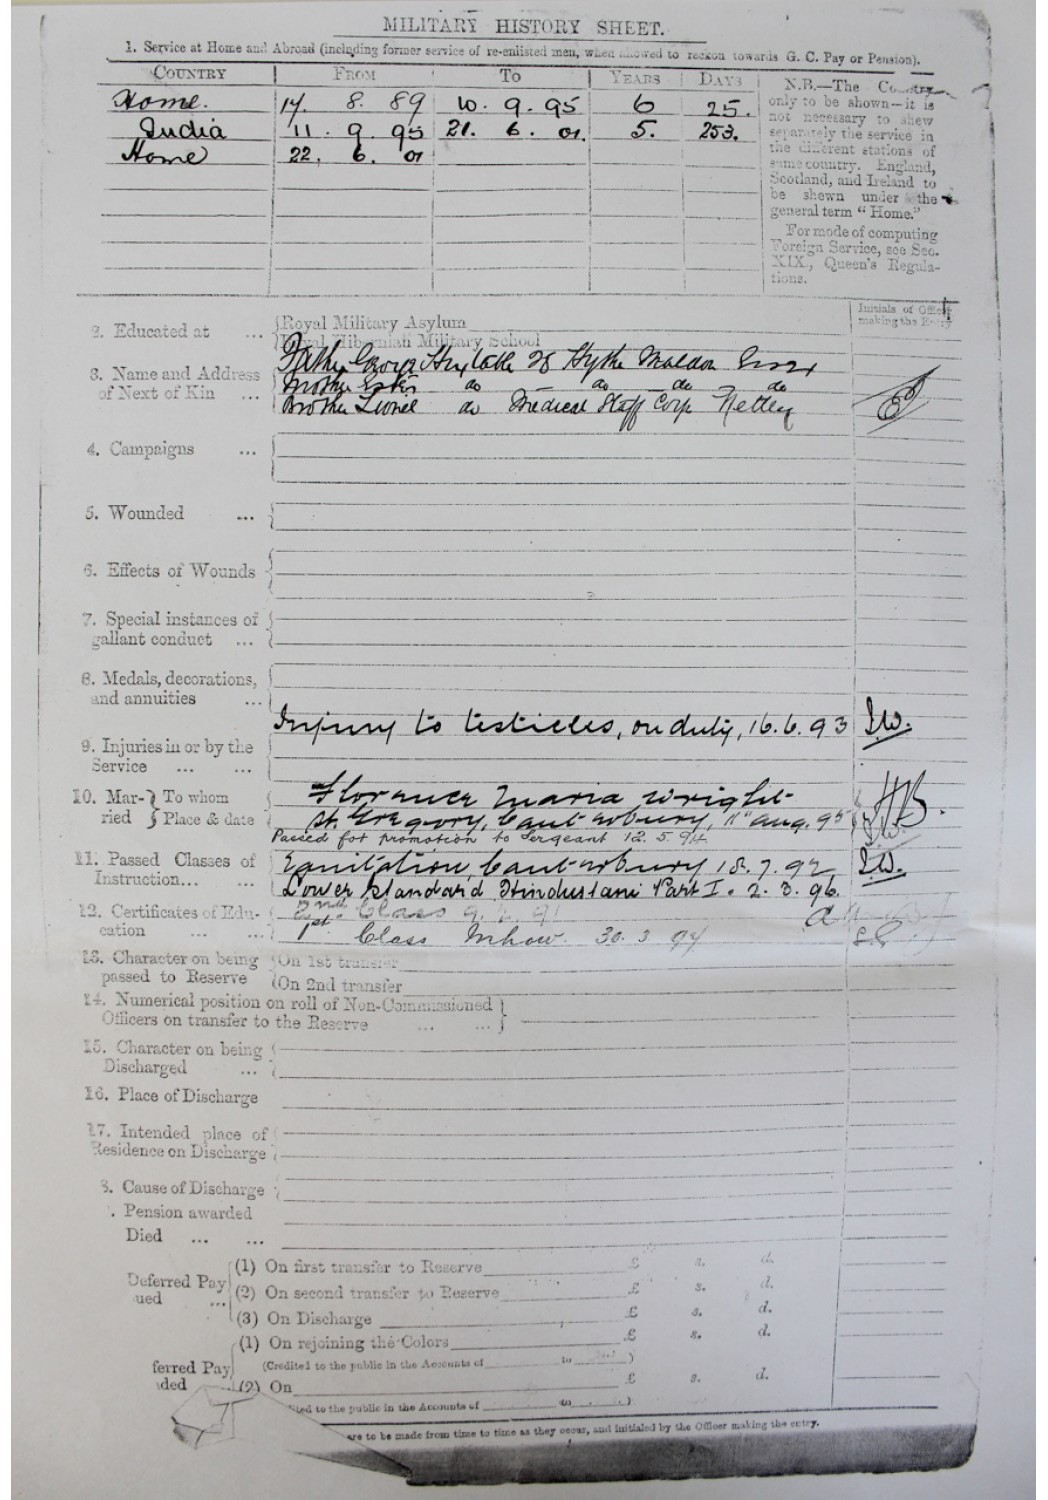 MILITARY HISTORY SHEET.
1. Service at Home and Abroad (including former service of re-enlisted men, when allowed to reckon towards G. C. Pay or Pension).
COUNTRY FROM TO YEARS DAYS
Home. 17. 8. 89 10. 9. 95 6 25.
India 11. 9. 95 21. 6. 01. 5. 253.
Home 22. 6. 01
N.B.—The Country
only to be shown—it is
not necessary to shew
separately the service in
the different stations of
same country. England,
Scotland, and Ireland to
be shewn under the
general term "Home."
For mode of computing
Foreign Service, see Sec.
XIX., Queen's Regula-
tions.
Initials of Officer
making the Entry
2. Educated at ... Royal Military Asylum
Royal Hibernian Military School
3. Name and Address
of Next of Kin ...
Father George Hythe Maldon Essex
Mother Ester do do do do
Brother Lionel do Medical Staff Corps Netley
4. Campaigns ...
5. Wounded ...
6. Effects of Wounds
7. Special instances of
gallant conduct ...
8. Medals, decorations,
and annuities ...
Injury to testicles, on duty, 16.6.93 J.W.
9. Injuries in or by the
Service ... ...
10. Mar- To whom Florence Maria Wright
ried Place & date St. Gregory, Canterbury, 11th Aug. 95
Passed for promotion to Sergeant 12.5.94
11. Passed Classes of
Instruction... ...
Equitation, Canterbury 18.7.92 J.W.
Lower Standard Hindustani Part I. 2.3.96.
12. Certificates of Edu-
cation ... ...
2nd Class
1st Class Mhow. 30.3.97
13. Character on being
passed to Reserve
On 1st transfer
On 2nd transfer
14. Numerical position on roll of Non-Commissioned
Officers on transfer to the Reserve ... ...
15. Character on being
Discharged ...
16. Place of Discharge
17. Intended place of
Residence on Discharge
8. Cause of Discharge
. Pension awarded
Died ... ...
Deferred Pay
ued ...
(1) On first transfer to Reserve £ s. d.
(2) On second transfer to Reserve £ s. d.
(3) On Discharge £ s. d.
ferred Pay
ded
(1) On rejoining the Colors £ s. d.
(Credited to the public in the Accounts of to )
(2) On £ s. d.
dited to the public in the Accounts of to )
are to be made from time to time as they occur, and initialed by the Officer making the entry.